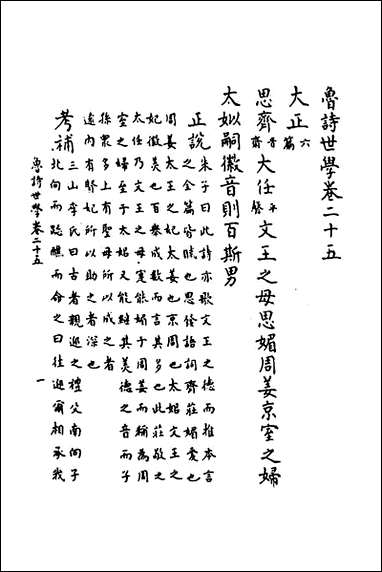 魯詩世學卷二十五
大正六篇
思齊音齋大任平聲文王之母思媚周姜京室之婦
太姒嗣徽音則百斯男
正說朱子曰此詩亦歌文王之德而推本言
之全篇皆賦也思發語詞齊莊媚愛也
周姜太王之妃太姜也京周也太姒文王之
妃徽美也百舉成數而言其多也此莊敬之
太任乃文王之母寔能媚于周姜而稱為周
室之婦至于太姒又能繼其美德之音而子
孫眾多上有聖母所以成之者
遠內有賢妃所以助之者深也
考補三山李氏曰古者親迎之禮父南向子
北向而跪醮而命之曰往迎爾相承我
魯詩世學卷二十五
一